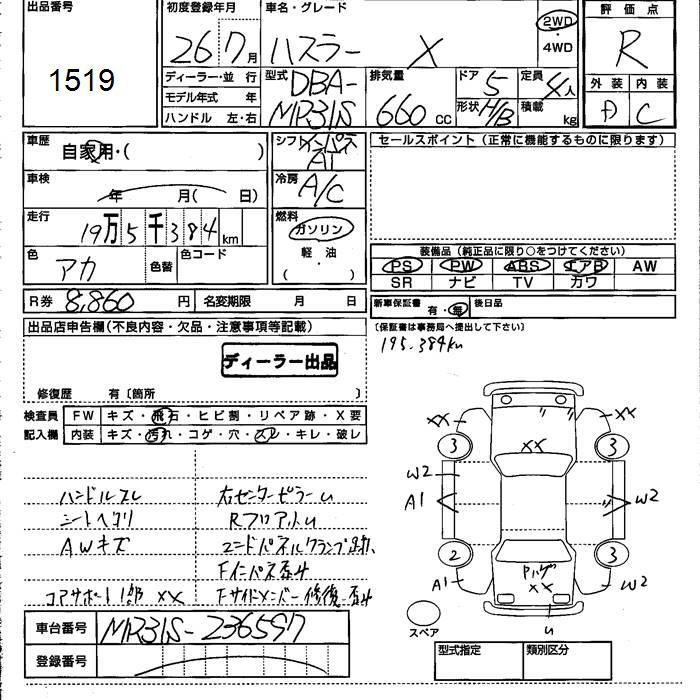 出品番号
1519
初度登録年月
26 7月
車名・グレード
ハスラー X
2WD
4WD
評価点
R
ディーラー・並 行
モデル年式 年
ハンドル 左・右
型式
DBA-
MR31S
排気量
660 cc
ドア 5
形状 H/B
定員 4人
積載 kg
外装 内装
D C
車歴
自家用・( )
車検
年 月( 日)
走行
19万5千384km
色
アカ
色替
色コード
シフト インパネ
AT
冷房
A/C
燃料
ガソリン
軽・油
( )
セールスポイント (正常に機能するものに限ります)
装備品 (純正品に限り○をつけてください)
PS PW ABS エアB AW
SR ナビ TV カワ
R券 8,860 円
名変期限 月 日
新車保証書 有・無
後日品
(保証書は事務局へ提出して下さい)
195,384km
出品店申告欄(不良内容・欠品・注意事項等記載)
ディーラー出品
修復歴 有〔箇所 〕
検査員記入欄
FW キズ・飛石・ヒビ割・リペア跡・X要
内装 キズ・汚れ・コゲ・穴・スレ・キレ・破レ
ハンドルスレ
シートヘタリ
AWキズ
コアサポート1部 XX
右センターピラーU
RフロアットU
エンドパネルクランプ跡、
Fインパネ歪サ
Fサイドメンバー修復歪サ
XX XX
3 XX 3
W2
A1 W2
2 3
A1 Pハゲ W2
XX
U
スペア
車台番号 MR31S-236597
登録番号
型式指定 類別区分